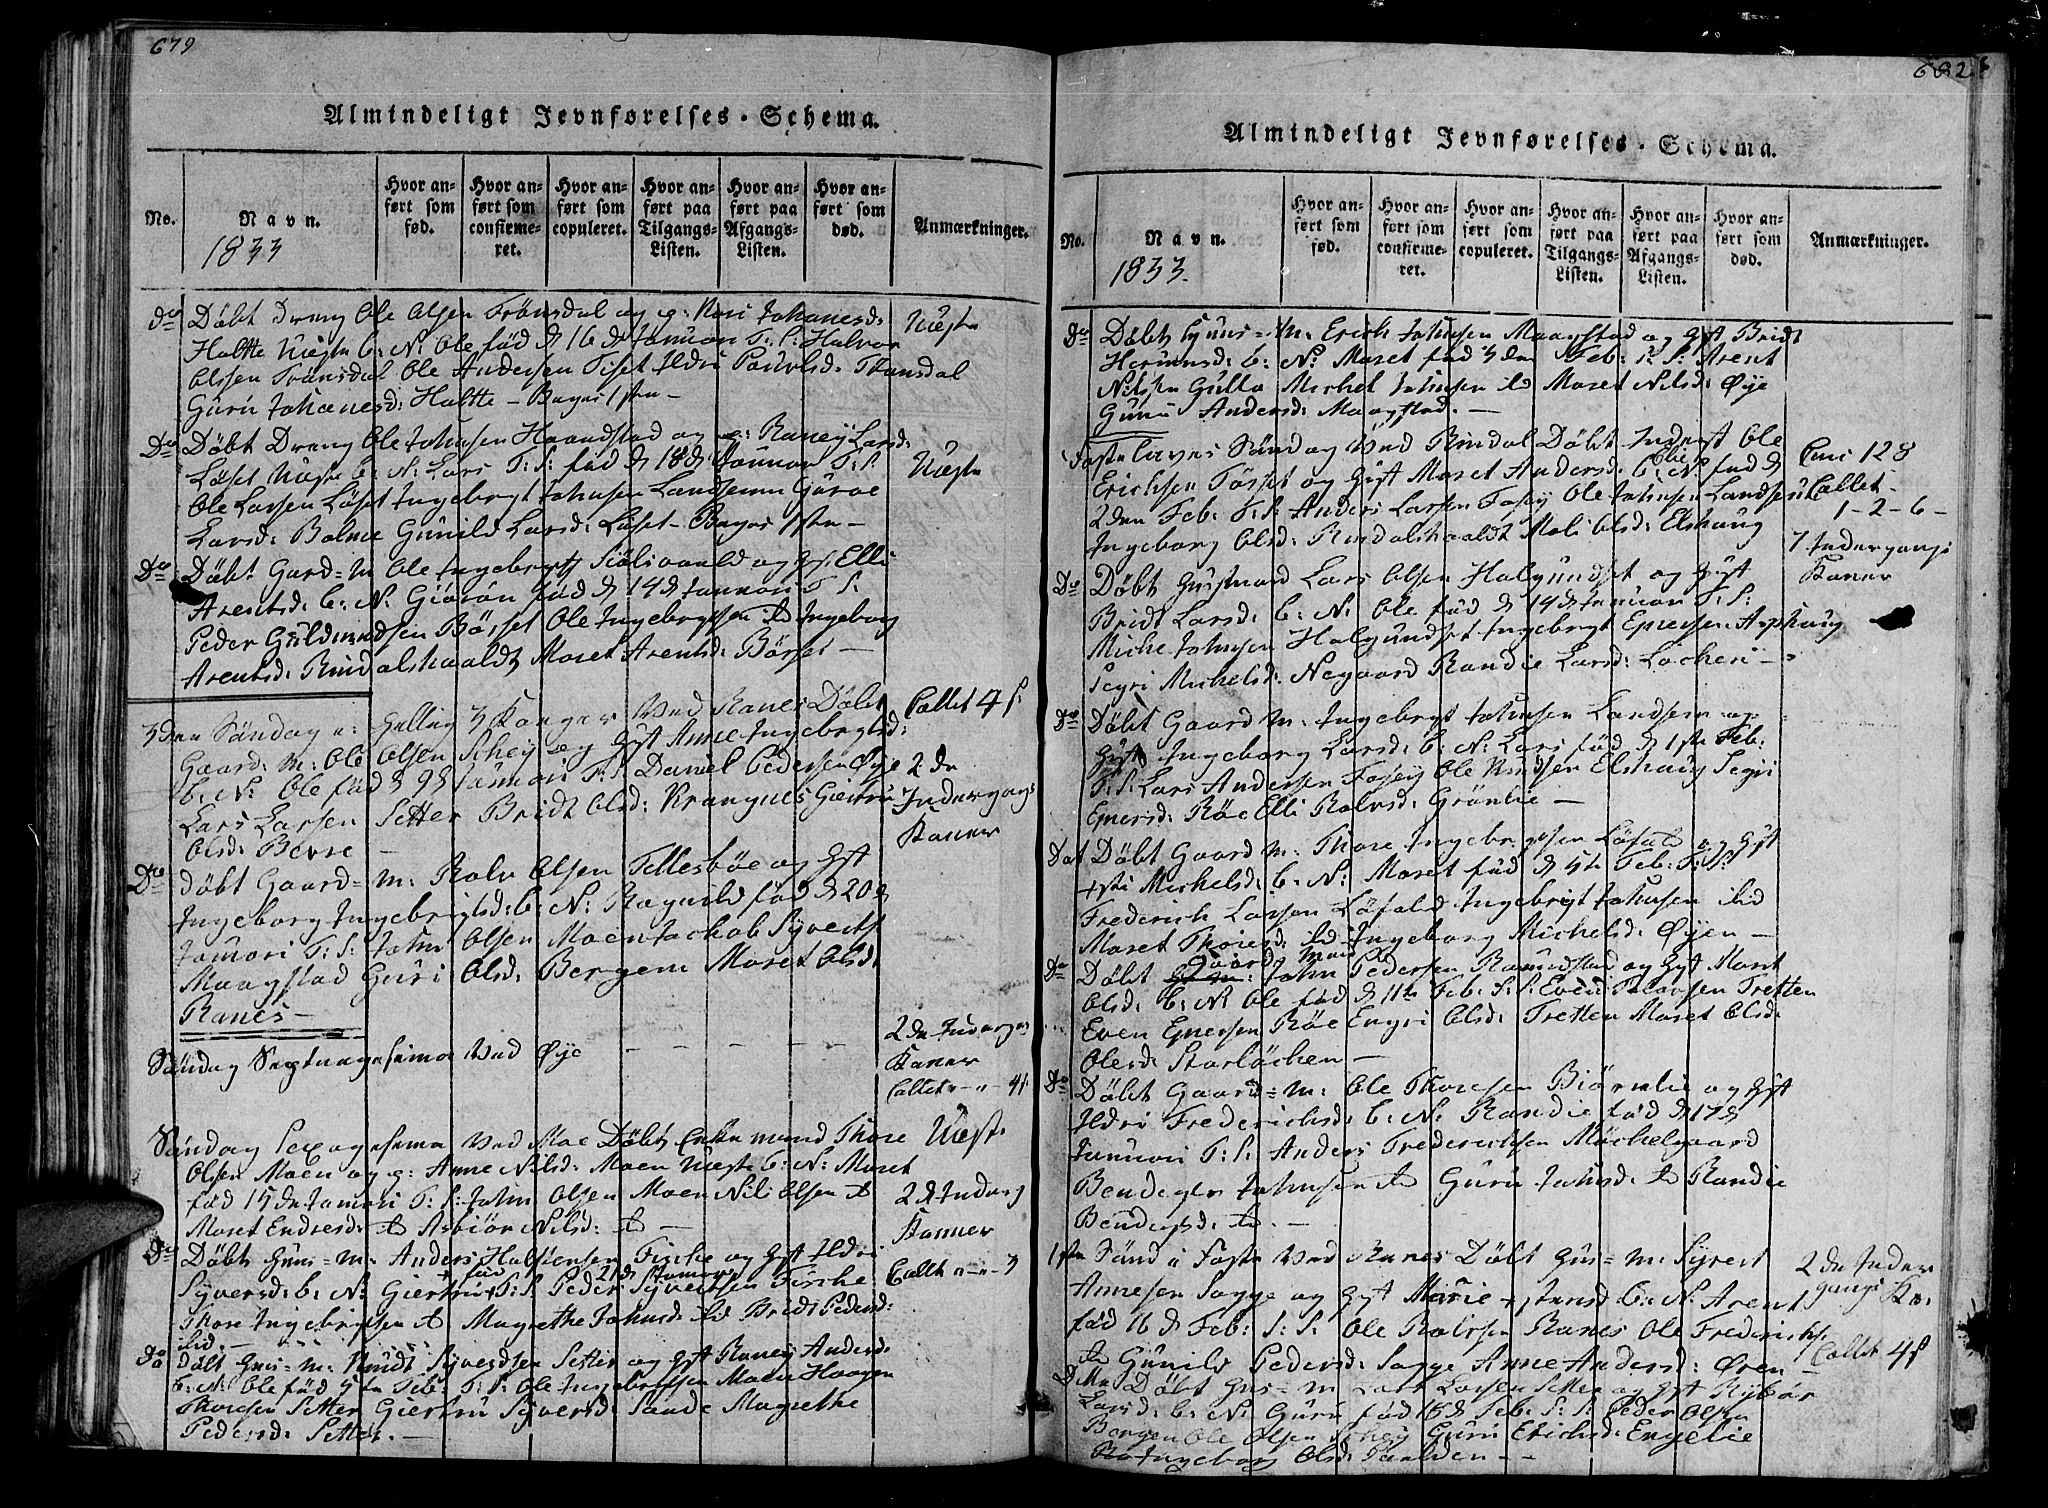 679
Almindeligt Jevnførelses-Schema.
No.
Navn.
1833
Hvor anført som fød.
Hvor anført som confirmeret.
Hvor anført som copuleret.
Hvor anført paa Tilgangs-Listen.
Hvor anført paa Afgangs-Listen.
Hvor anført som død.
Anmærkninger.
Do Döbt Dreng Ole Olsen Trönsdal og g: Kari Johanesd:
Holtte Uægte b: N: Ole fød d 16 d Januari T: S: Halvor
Olsen Trönsdal Ole Andersen Tiset Ildri Povelsd: Trönsdal
Guru Johanesd: Holtte - Bages 1ste -
Uægte
Do Döbt Dreng Ole Johnsen Haandstad og g: Raney Larsd:
Löset Uægte b: N: Lars T: S: fød d 18 d Januar T: S:
Ole Larsen Löset Ingebrigt Johnsen Landsem Guroe
Larsd: Bolme Gunild Larsd: Löset - Bages 1ste -
Uægte
Do Döbt Gard=M Ole Ingebrigts Siölsvold og g: Elli
Arentsd: b: N: Giören fød d 14 d Januari T: S:
Peder Guldmundsen Bösset Ole Ingebrigtsen ibd Ingeborg
Arentsd: Rindalshaald Moret Arentsd: Börset -
3den Söndag e: Hellig 3 Konger Ved Ranes Döbt
Gaard: M: Ole Olsen Schey og gift Anne Ingebrigtsd:
b: N: Ole fød d 9 d Januari T: S: Daniel Pedersen Øye
Lars Larsen Setter Bridt Olsd: Krangnes Giertru
Olsd: Bevre -
Collet 4 s:
2 de
Indergangs
Koner
Do döbt Gaard=M: Rolv Olsen Tellesböe og Gift
Ingeborg Ingebrigtsd: b: N: Ragnild fød d 20 d
Januari T: S: John Olsen Moen Jachob Syverts
Maagstad Guri Olsd: Bergem Moret Olsd:
Ranes -
Söndag Septuagesima Ved Øye - - - - -
2 de Indergangs
Koner
Collet - - 4 s
Söndag Sexagesima Ved Moe Döbt Enkemand Thore
Olsen Moen og g: Anne Nilsd: Moen Uægte b: N: Moret
fød 15 de Januari T: S: John Olsen Moen Nils Olsen ibd
Moret Endresd: ibd Asbiör Nilsd: ibd -
Uægte
2 de Inderg
Konner
Do Döbt Guus=m: Anders Halstensen Fische og Gift Ildri
Syversd: b: N: Giertru fød 21 d Januari T: S: Peder Syversen Fische
Thore Ingebrigtsen ibd Magrethe Johnsd: ibd Bridt Pedersd:
ibid -
Collet - - 3
Do döbt Guus=m: Knudt Syvertsen Setter og gift Raney Andersd:
b: N: Ole fød 5 te Feb: T: S: Ole Ingebrigtsen Moen Haagen
Thoresen Setter Giertru Syversd: Sande Magrethe
Pedersd: Setter. -
682
Almindeligt Jevnførelses-Schema.
No.
Navn.
1833.
Hvor anført som fød.
Hvor anført som confirmeret.
Hvor anført som copuleret.
Hvor anført paa Tilgangs-Listen.
Hvor anført paa Afgangs-Listen.
Hvor anført som død.
Anmærkninger.
Do Döbt Huus=M: Erich Johnsen Maagstad og gft Bridt
Hermensd: b: N: Moret fød 3 den Feb: T: S: Arent
Nilsen Gulla Michel Johnsen ibd Moret Nilsd: Øye
Guru Andersd: Maagstad. -
Fastelavns Söndag Ved Rindal Döbt Inderst Ole
Erichsen Tösset og Gift Moret Andersd: b: N: Elie fød d
2 den Feb: T: S: Anders Larsen Fosey Ole Johnsen Landsem
Ingeborg Olsd: Rindalshaaldt Moli Olsd: Elshaug
Comi 128
Collet -
1 - 2 - 6 -
7 Indergangs
Koner
Do Döbt Husmand Lars Olsen Halgundset og gft
Bridt Larsd: b: N: Ole fød d 14 d Januar T: S:
Miche Johnsen Halgundset Ingebrigt Enersen Asphaug
Segri Michelsd: Negaard Randie Larsd: Löchen -
Do Döbt Gaard M: Ingebrigt Johnsen Landsem og
Gift Ingeborg Larsd: b: N: Lars fød d 1 ste Feb:
T: S: Lars Andersen Fosey Ole Knudsen Elshaug Segri
Enersd: Röe Elli Rolvsd: Grönlie -
Dot Döbt Gaard M: Thore Ingebrigtsen Löfald og Gift
Michelsd: b: N: Moret fød d 5 te Feb: T: S:
Frederich Larsen Löfald Ingebrigt Johnsen ibid
Moret Thoresd: ibd Ingeborg Michelsd: Øyen -
Do Döbt Gaard Mand John Pedersen Romundstad og Gft Moret
Olsd: b: N: Ole fød d 11 te Feb: T: S: Even Tretten
Even Enersen Röe Engri Olsd: Tretten Moret Olsd:
Storlöchen -
Do Döbt Gaard=m: Ole Thoresen Biörnlie og Gft
Ildri Frederichsd: b: N: Randie fød d 17 d
Januari T: S: Anders Frederichsen Möchelgaard
Bendigter Johnsen ibd Guru Johnsd: ibd Randie
Bendigtsd: ibd -
1ste Sönd i Faste Ved Ranes Döbt Guus=m: Syvert
Annesen Sogge og Gft Marie b: N: Arent
fød 16 d Feb: T: S: Ole Rolvsen Ranes Ole Frederichs
ibd Gunild Pedersd: Sogge Anne Andersd: Øren -
2 de Inder
gangs Ko.
Collet 4 s
Döbt Guus=m Lars Larsen Setter og gift
Larsd: b: N: Guru fød 18 d Feb: T: S: Peder Olsen
Bergem Ole Olsen Schey Guru Erichsd: Engelie
Ingeborg Olsd: